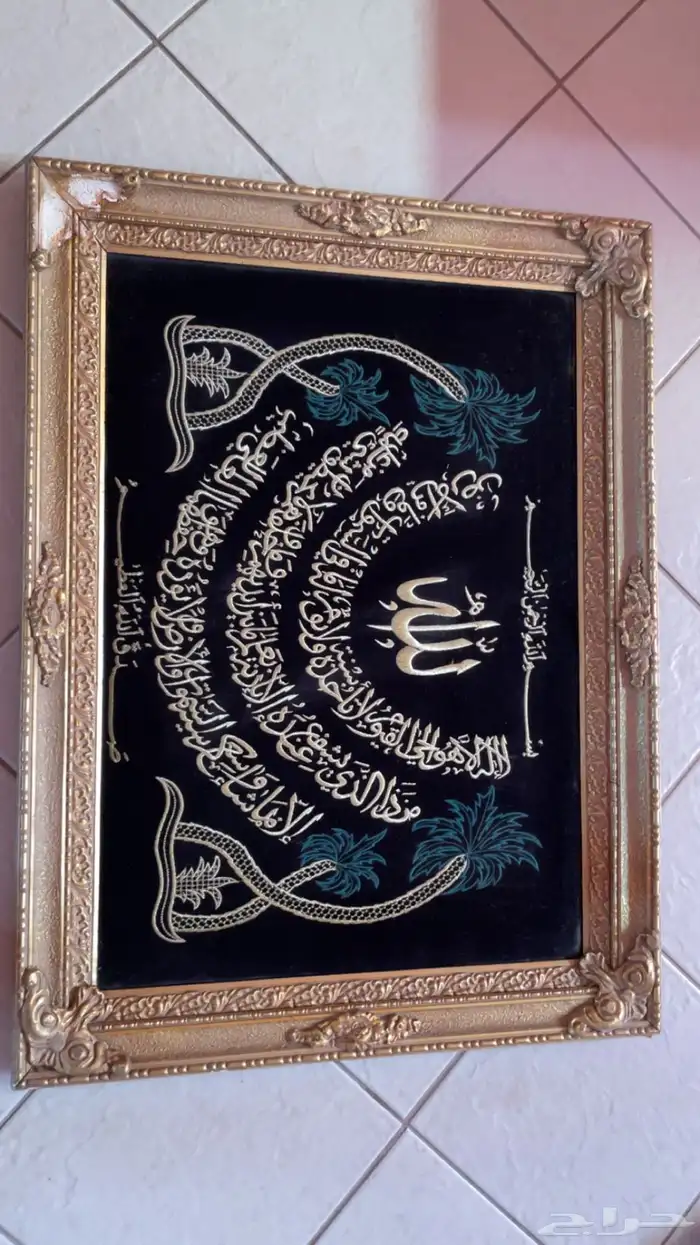 بسم الله الرحمن الرحيم
الله
الله لا إله إلا هو الحي القيوم لا تأخذه سنة ولا نوم له ما في السموات وما في الأرض
من ذا الذي يشفع عنده إلا بإذنه يعلم ما بين أيديهم وما خلفهم ولا يحيطون بشيء من علمه
إلا بما شاء وسع كرسيه السموات والأرض ولا يؤوده حفظهما وهو العلي العظيم
صدق الله العظيم
حراج